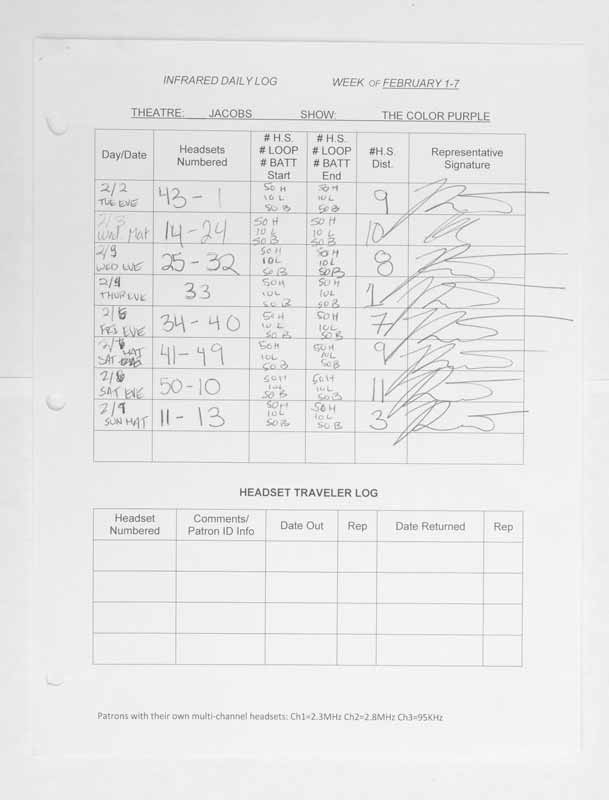 INFRARED DAILY LOG WEEK OF FEBRUARY 1-7
THEATRE: JACOBS SHOW: THE COLOR PURPLE
Day/Date Headsets Numbered # H.S. # LOOP # BATT Start # H.S. # LOOP # BATT End #H.S. Dist. Representative Signature
2/2 TUE EVE 43 - 1 50 H 10 L 50 B 50 H 10 L 50 B 9
2/3 Wed Mat 14-24 50 H 10 L 50 B 50 H 10 L 50 B 10
2/3 WED EVE 25 - 32 50 H 10 L 50 B 50 H 10 L 50 B 8
2/4 THUR EVE 33 50 H 10 L 50 B 50 H 10 L 50 B 1
2/5 FRI EVE 34 - 40 50 H 10 L 50 B 50 H 10 L 50 B 7
SAT MAT 41 - 49 50 H 10 L 50 B 50 H 10 L 50 B 9
2/6 SAT EVE 50-10 50 H 10 L 50 B 50 H 10 L 50 B 11
2/7 SUN MAT 11 - 13 50 H 10 L 50 B 50 H 10 L 50 B 3
HEADSET TRAVELER LOG
Headset Numbered Comments/ Patron ID Info Date Out Rep Date Returned Rep
Patrons with their own multi-channel headsets: Ch1=2.3MHz Ch2=2.8MHz Ch3=95KHz